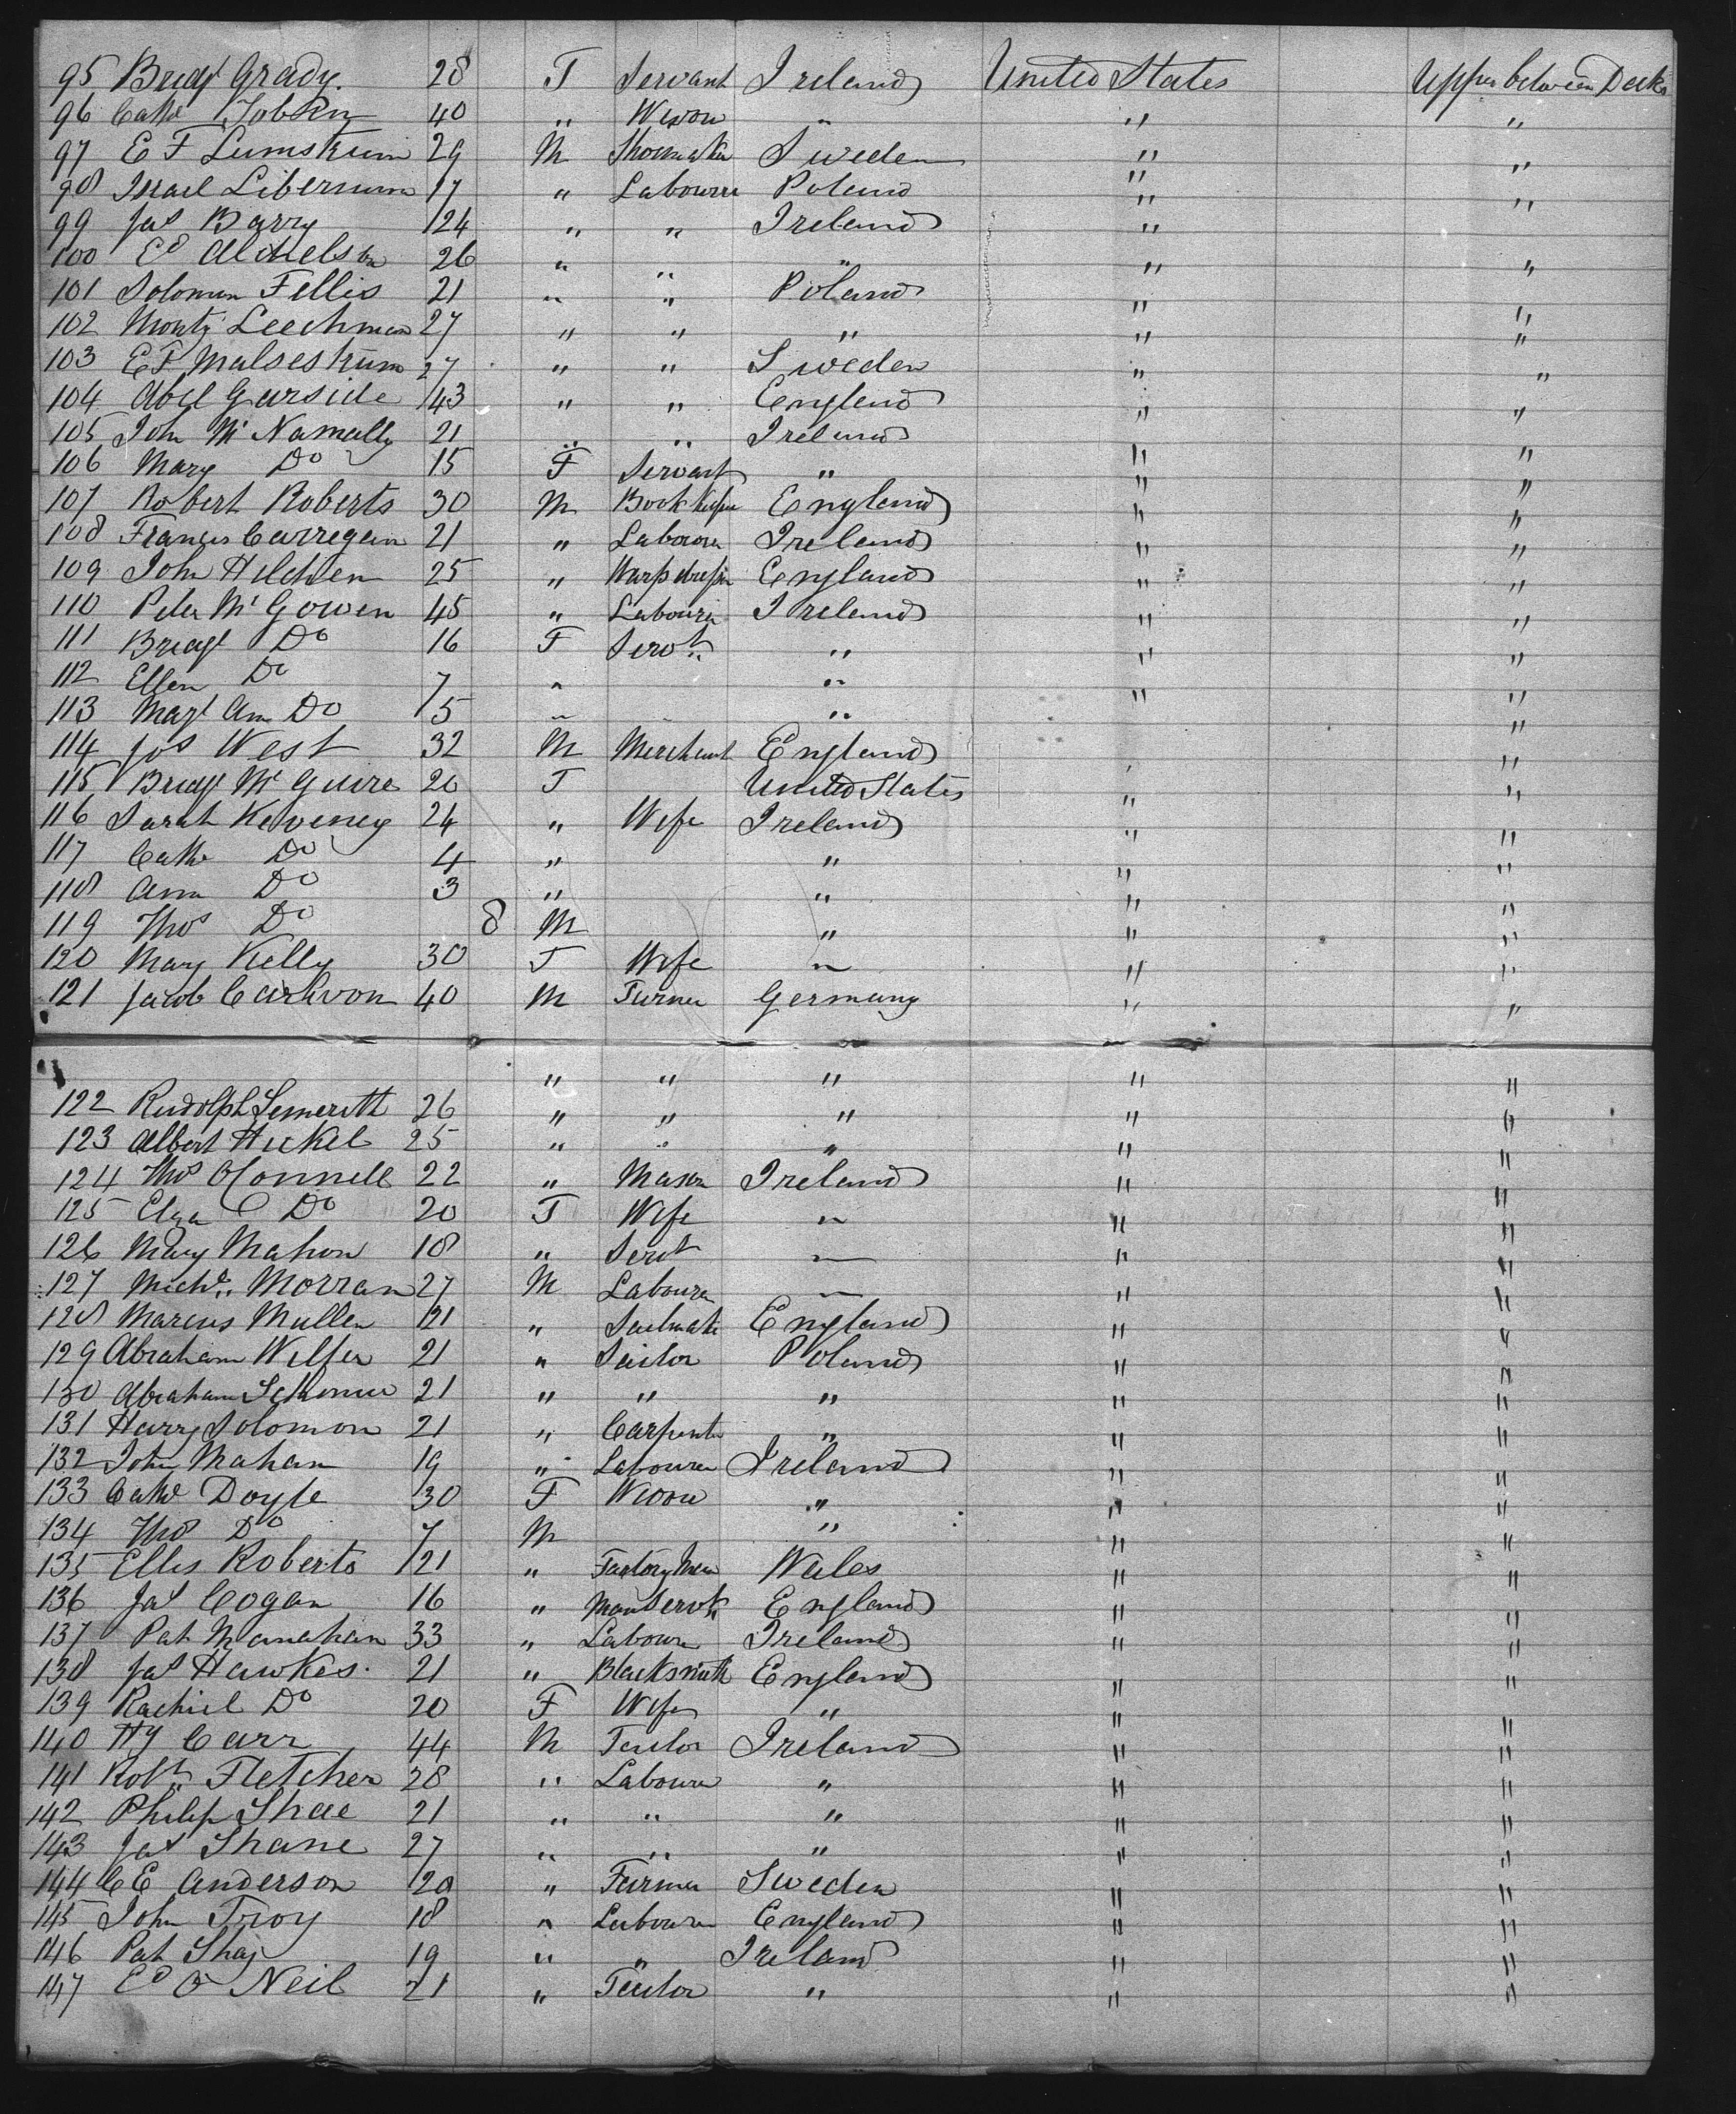 95 Bridgt Grady. 28 F Servant Ireland United States Upper between Decks
96 Cathe Tobin 40 " Widow " " "
97 E F Lumstrum 29 M Shoemaker Sweden " "
98 Israel Libernum 17 " Labourer Poland " "
99 Jas Barry 24 " " Ireland " "
100 Ed 26 " " " " "
101 Solomon Fellis 21 " " Poland " "
102 Monty Leechman 27 " " " " "
103 E F Malsestrum 27 " " Sweden " "
104 Abel Garside 43 " " England " "
105 John Mc Namally 21 " " Ireland " "
106 Mary Do 15 F Servant " " "
107 Robert Roberts 30 M Book Keeper England " "
108 Francis Carregan 21 " Labourer Ireland " "
109 John Hilchen 25 " Warp dresser England " "
110 Peter Mc Gowen 45 " Labourer Ireland " "
111 Bridgt Do 16 F Servt " " "
112 Ellen Do 7 " " " "
113 Magt Ann Do 5 " " "
114 Jos West 32 M Merchant England "
115 Bridgt Mc Guire 20 F United States " "
116 Sarah Keveney 24 " Wife Ireland " "
117 Cathe Do 4 " " " "
118 Ann Do 3 " " " "
119 Thos Do 8 M " " "
120 Mary Kelly 30 F Wife " " "
121 Jacob Carhvon 40 M Turner Germany " "
" " " " "
122 Rudolph Semeritt 26 " " " " "
123 Albert Hickel 25 " " " " "
124 Thos OConnell 22 " Mason Ireland " "
125 Eliza Do 20 F Wife " " "
126 Mary Mahon 18 " Servt " " "
127 Michl Morran 27 M Labourer " " "
128 Marcus Mullen 21 " England " "
129 Abraham Wilfer 21 " Sailor Poland " "
130 Abraham 21 " " " " "
131 Harry Solomon 21 " Carpenter " " "
132 John Mahan 19 " Labourer Ireland " "
133 Cathe Doyle 30 F Widow " " "
134 Thos Do 7 M " " "
135 Ellis Roberts 21 " Factory Man Wales " "
136 Jas Cogan 16 " Man Servt England " "
137 Pat Manahan 33 " Labourer Ireland " "
138 Jas Hawkes. 21 " Blacksmith England " "
139 Rachiel Do 20 F Wife " " "
140 Hy Carr 44 M Tailor Ireland " "
141 Robt Fletcher 28 " Labourer " " "
142 Philip Shae 21 " " " " "
143 Jas Shane 27 " " " " "
144 C E Anderson 20 " Farmer Sweden " "
145 John Troy 18 " Labourer England " "
146 Pat Shay 19 " " Ireland " "
147 Ed O Neil 21 " Tailor " " "